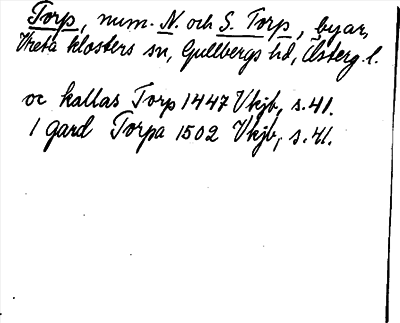 Torp, num. N. och S. Torp, byar,
Vreta klosters sn, Gullbergs hd, Östergl.
oc kallas Torp 1447 Vkjb, s. 41.
1 gard Torpa 1502 Vkjb, s. 41.